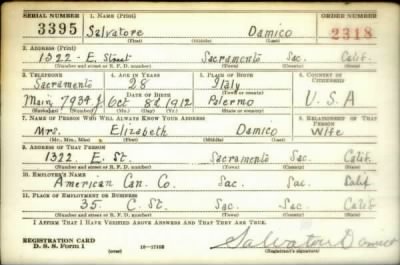 SERIAL NUMBER 1. NAME (Print) ORDER NUMBER
3395 Salvatore Damico 2318
(First) (Middle) (Last)
2. ADDRESS (Print)
1322 - E. Street Sacramento Sac. Calif.
(Number and street or R. F. D. number) (Town) (County) (State)
3. TELEPHONE 4. AGE IN YEARS 5. PLACE OF BIRTH 6. COUNTRY OF CITIZENSHIP
Sacramento 28 Italy
DATE OF BIRTH
Main 7934 J Oct 8d 1912 Palermo U. S. A
(Exchange) (Number) (Mo.) (Day) (Yr.) (State or country)
7. NAME OF PERSON WHO WILL ALWAYS KNOW YOUR ADDRESS 8. RELATIONSHIP OF THAT PERSON
Mrs. Elizabeth Damico Wife
(Mr., Mrs., Miss) (First) (Middle) (Last)
9. ADDRESS OF THAT PERSON
1322 E. St. Sacramento Sac. Calif.
(Number and street or R. F. D. number) (Town) (County) (State)
10. EMPLOYER'S NAME
American Can. Co. Sac. Sac. Calif
11. PLACE OF EMPLOYMENT OR BUSINESS
35 C. St. Sac. Sac. Calif
(Number and street or R. F. D. number) (Town) (County) (State)
I AFFIRM THAT I HAVE VERIFIED ABOVE ANSWERS AND THAT THEY ARE TRUE.
REGISTRATION CARD
D. S. S. Form 1 (over) 16-17105 Salvatore Damico
(Registrant's signature)